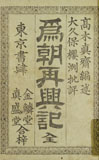 高木真齋編述
大久保櫻洲批評
爲朝再興記 全
東京書肆
金鱗堂
真盛堂
合梓